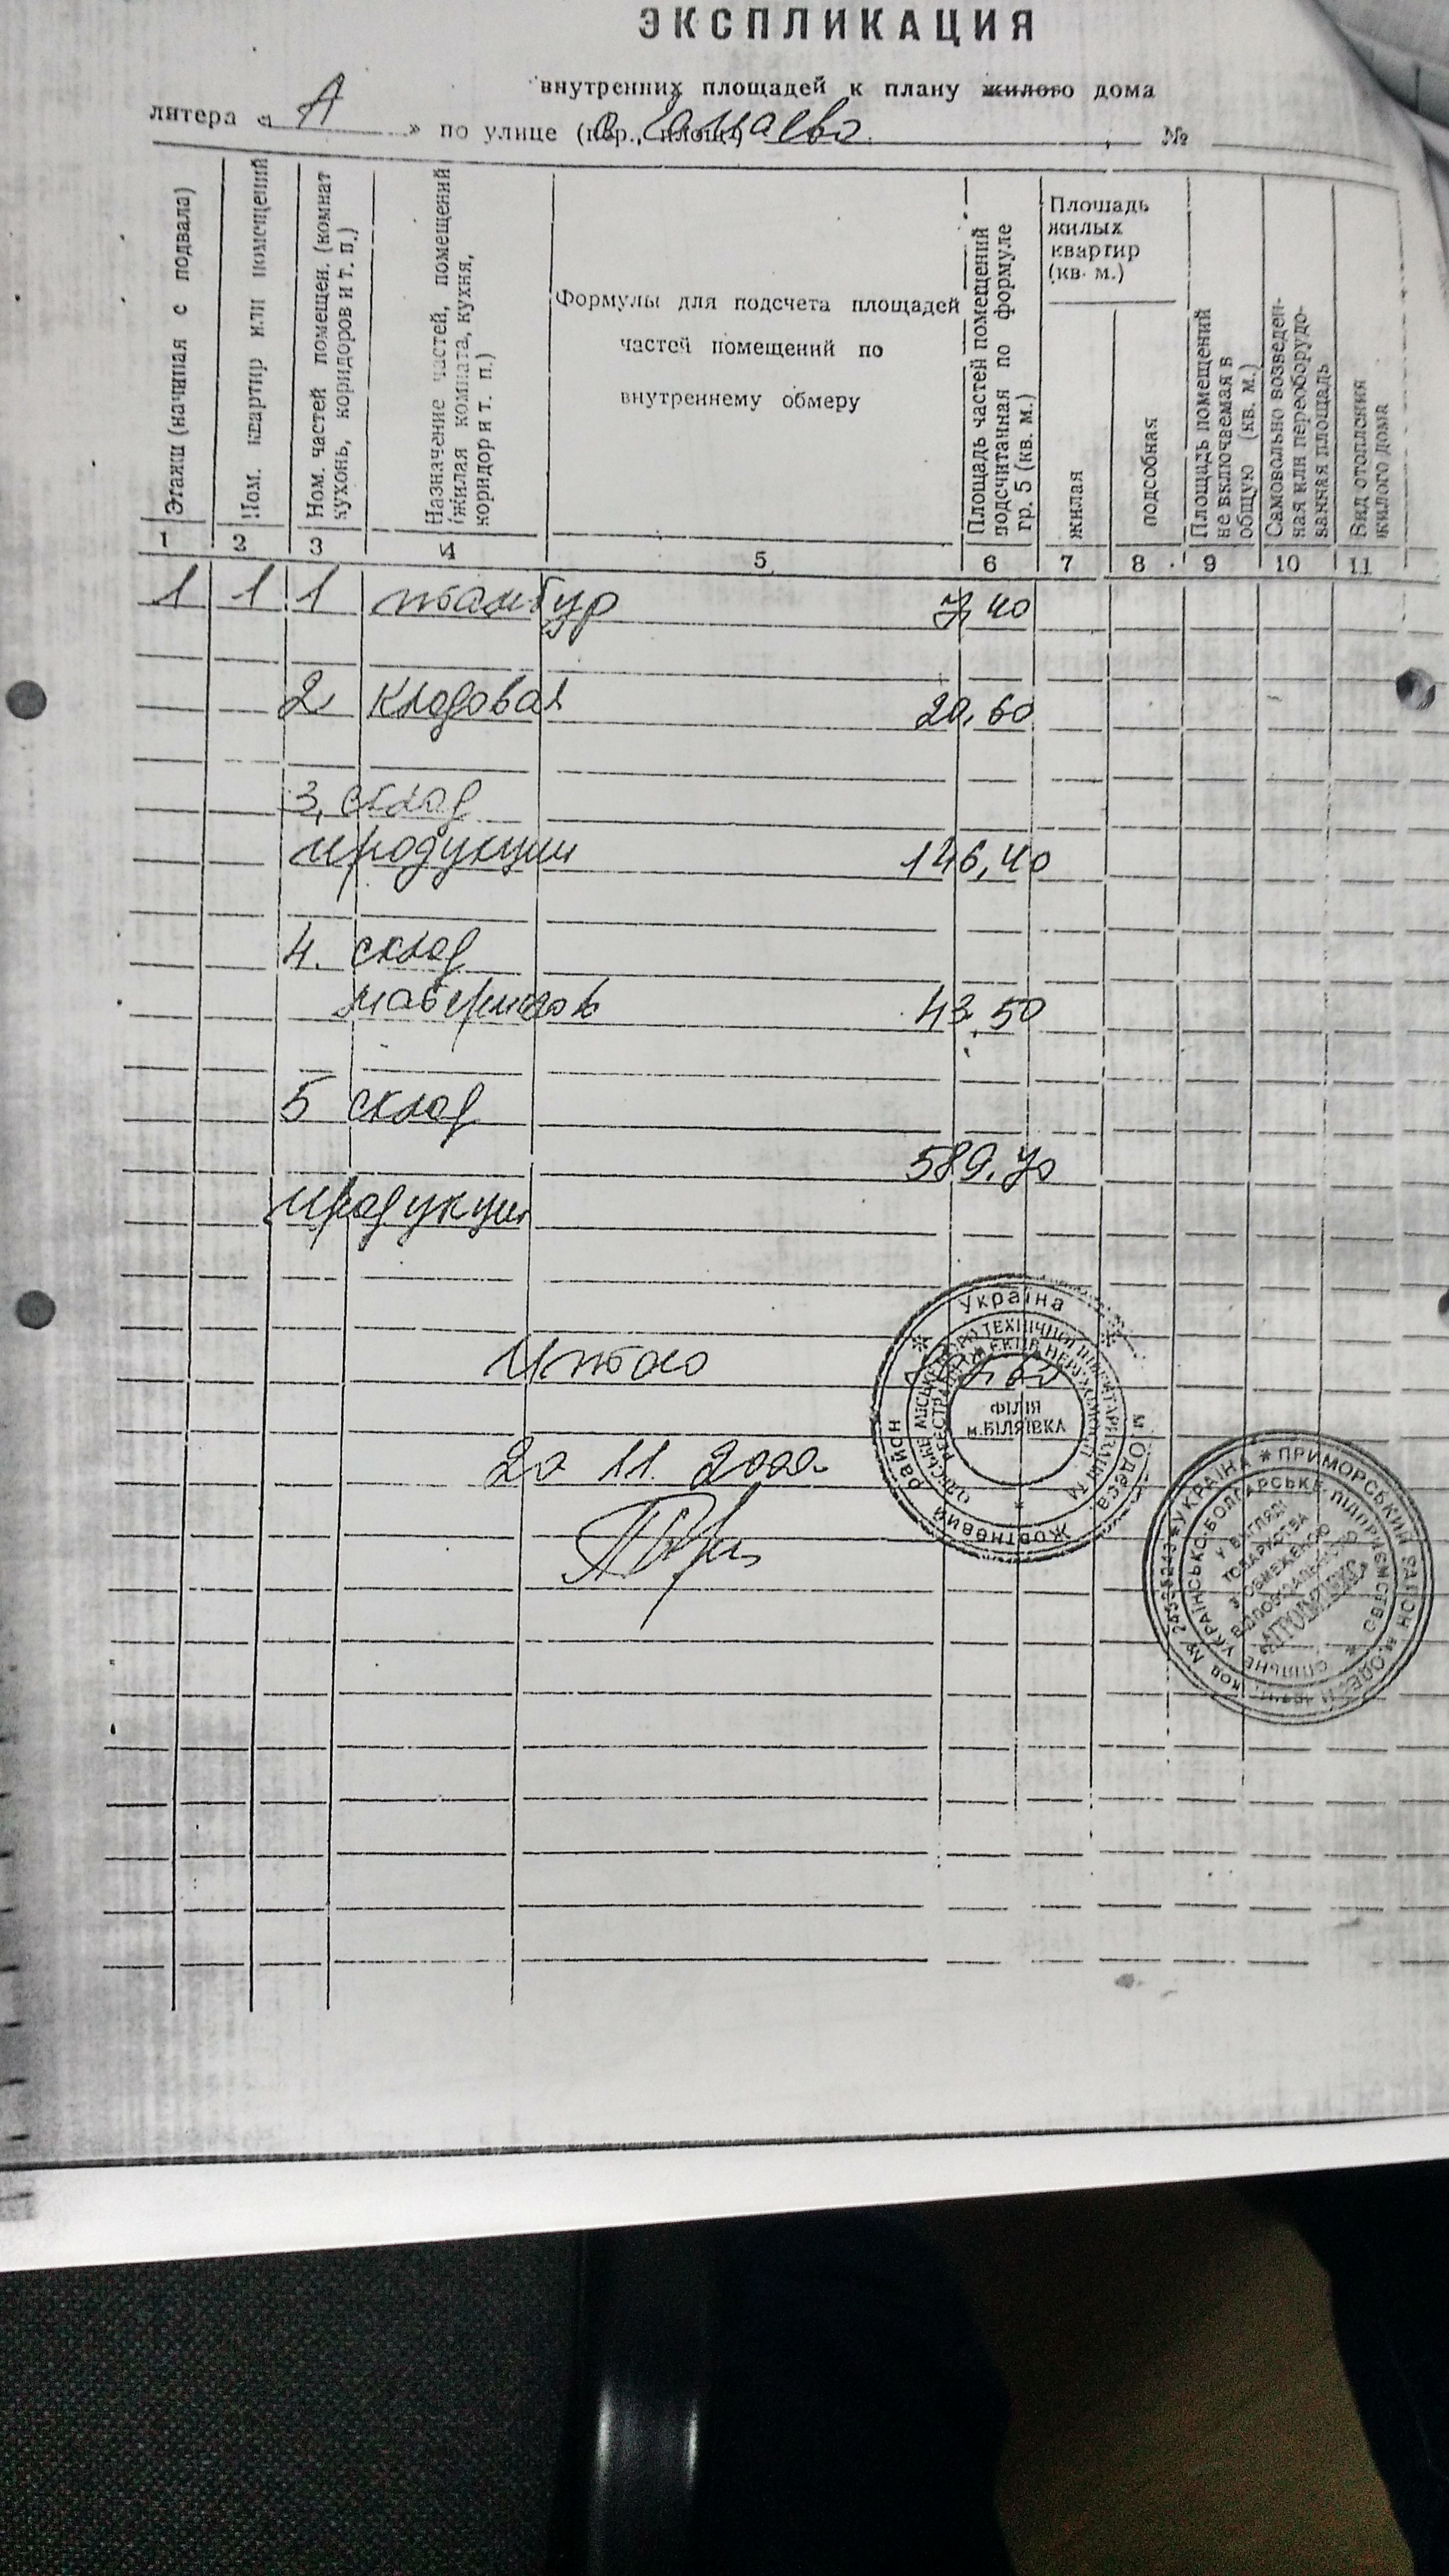 ЭКСПЛИКАЦИЯ
внутренних площадей к плану жилого дома
литера « А » по улице (пер., площ.) №
Этажи (начиная с подвала)
Ном. квартир или помещений
Ном. частей помещен. (комнат
кухонь, коридоров и т. п.)
Назначение частей, помещений
(жилая комната, кухня,
коридор и т. п.)
Формулы для подсчета площадей
частей помещений по
внутреннему обмеру
Площадь частей помещений
подсчитанная по формуле
гр. 5 (кв. м.)
Площадь
жилых
квартир
(кв. м.)
жилая
подсобная
Площадь помещений
не включаемая в
общую (кв. м.)
Самовольно возведен-
ная или переоборудо-
ванная площадь
Вид отопления
жилого дома
1 2 3 4 5 6 7 8 9 10 11
1 1 1 тамбур 7,40
2 кладовая 20,60
3, склад
продукции 146,40
4. склад
материалов 43,50
5 склад
589,70
продукции
Итого
20 11. 2000
Україна
м. Одеса
Жовтневий район
ФІЛІЯ
м.БІЛЯЇВКА
УКРАЇНА * ПРИМОРСЬКИЙ РАЙОН м.ОДЕСИ
СПІЛЬНЕ УКРАЇНСЬКО-БОЛГАРСЬКЕ ПІДПРИЄМСТВО
У ВИГЛЯДІ
ТОВАРИСТВА
З ОБМЕЖЕНОЮ
ВІДПОВІДАЛЬНІСТЮ